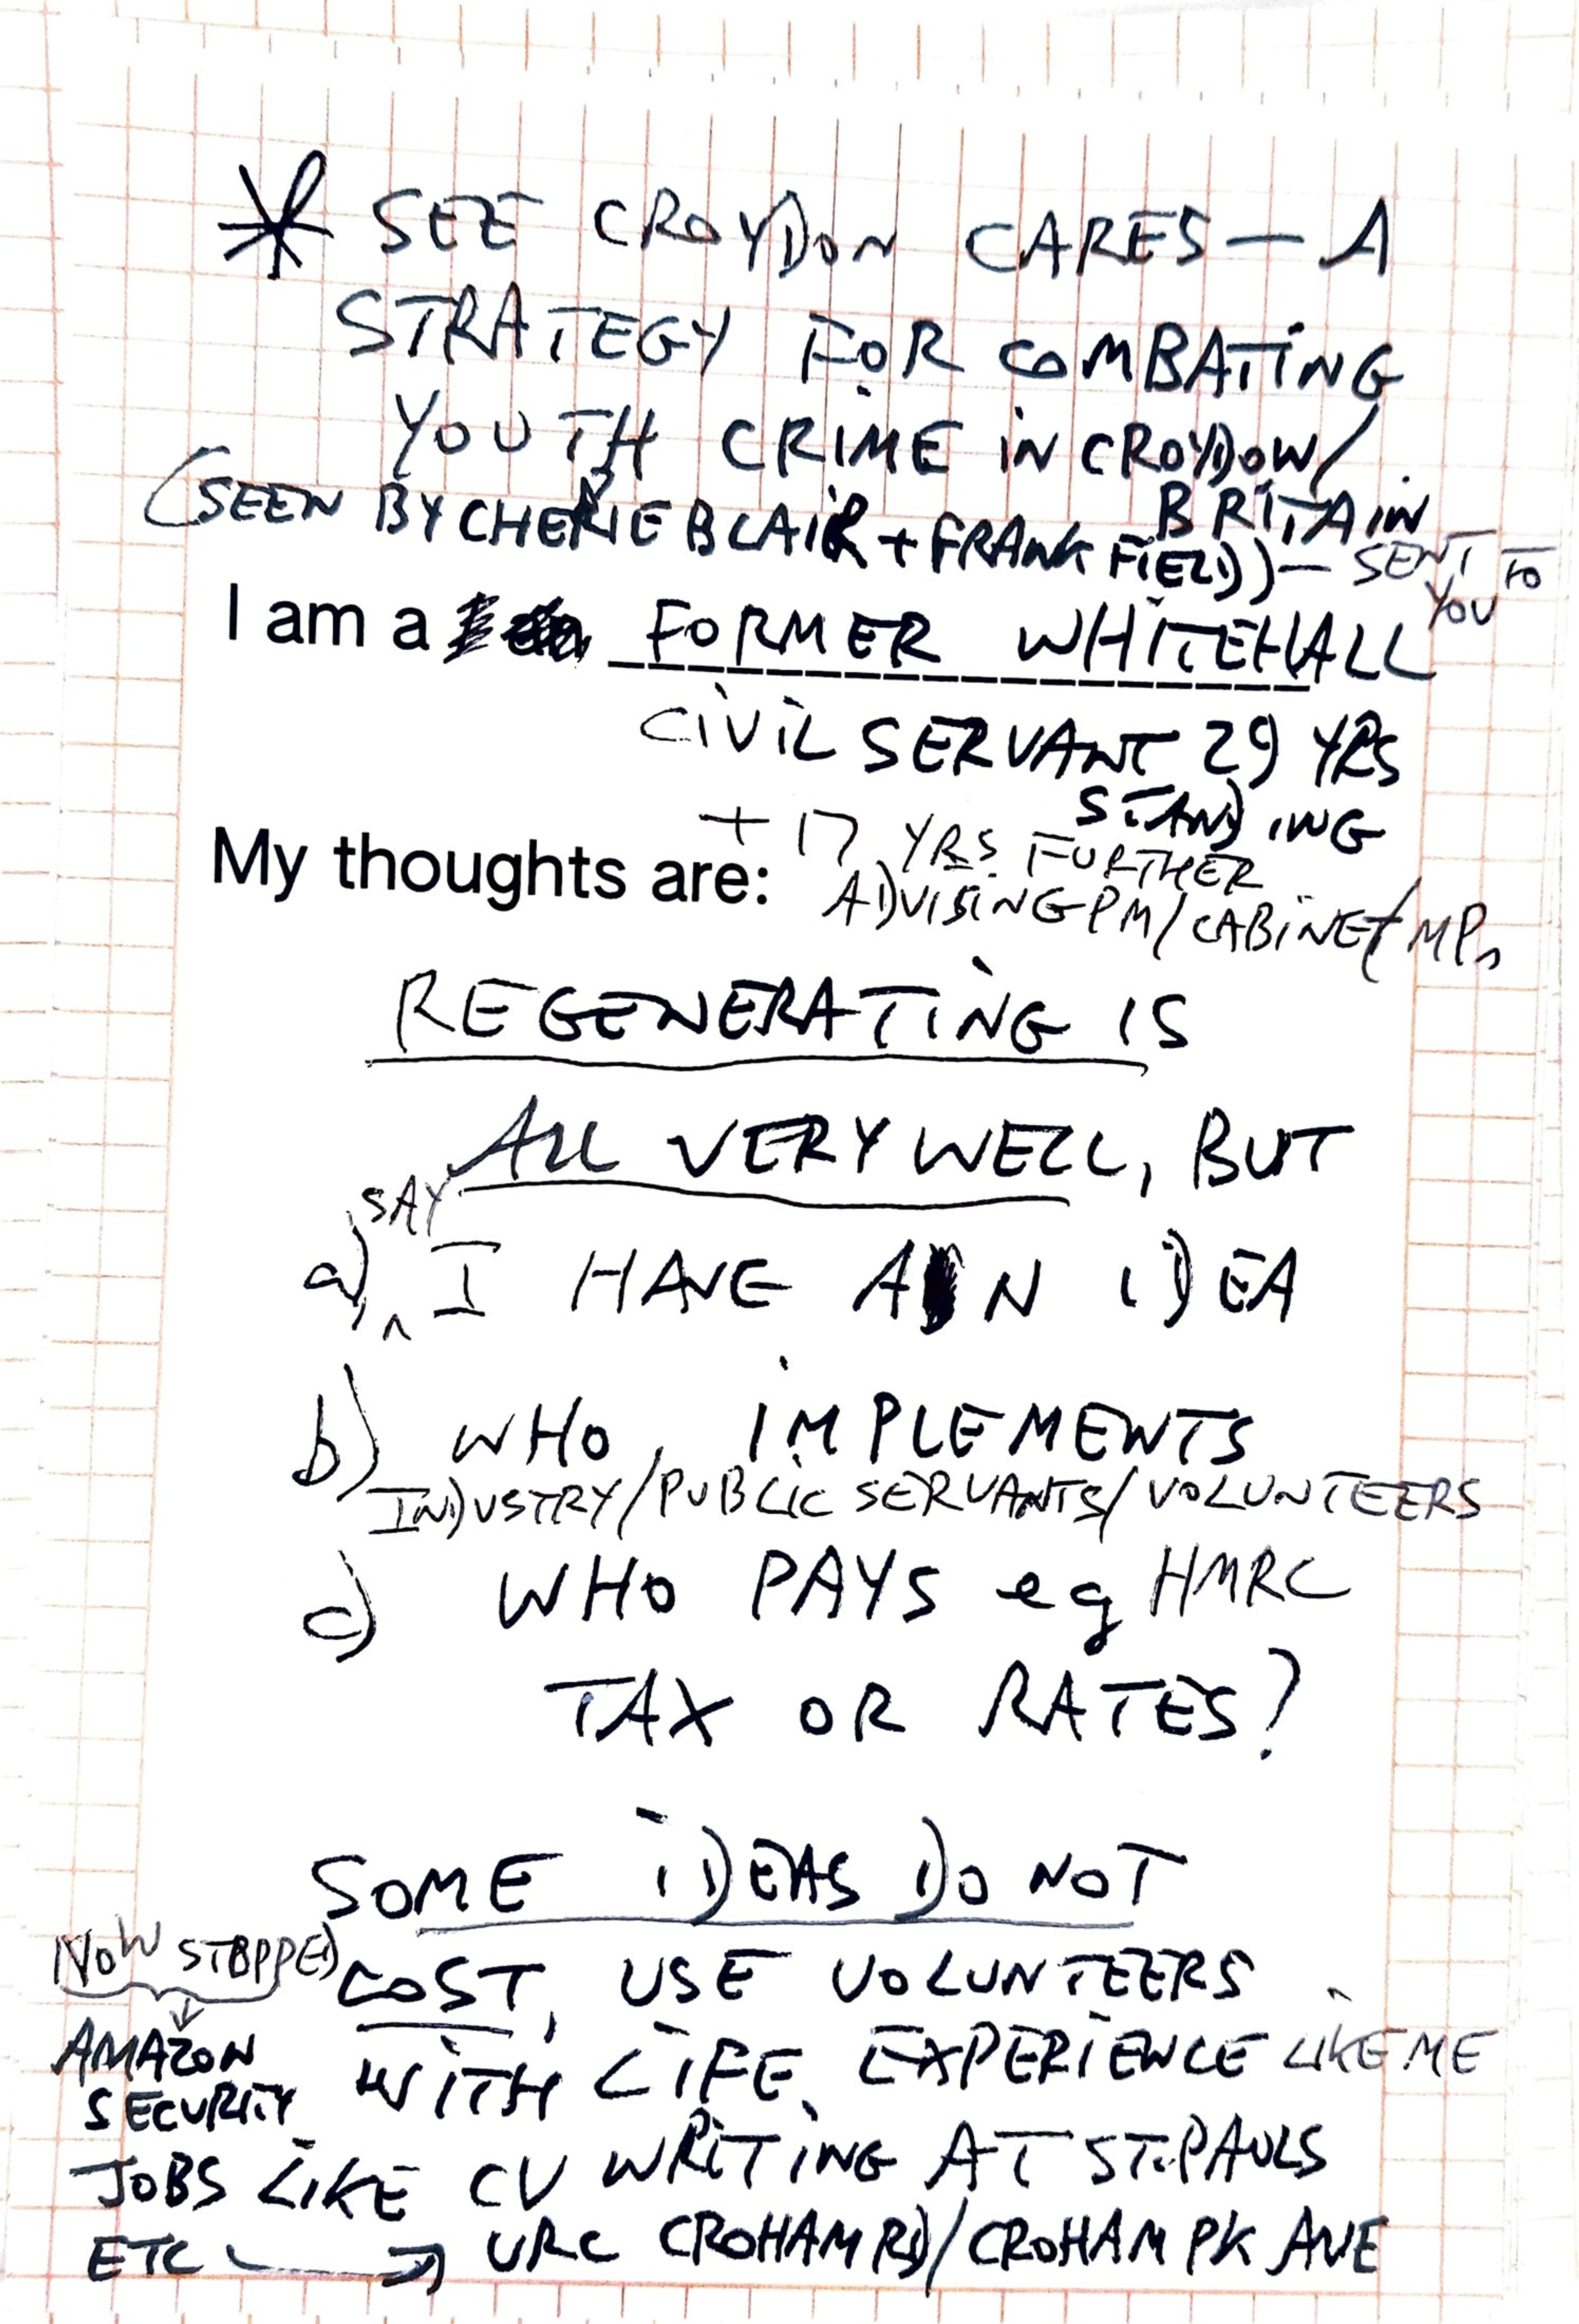 * SEE CROYDON CARES — A
STRATEGY FOR COMBATING
YOUTH CRIME IN CROYDON/
BRITAIN
(SEEN BY CHERIE BLAIR + FRANK FIELD) — SENT TO
YOU
I am a FORMER WHITEHALL
CIVIL SERVANT 29 YRS
STANDING
+ 17 YRS FURTHER
My thoughts are: ADVISING PM/CABINET/MPs
REGENERATING IS
ALL VERY WELL, BUT
SAY
a) I HAVE AN IDEA
b) WHO IMPLEMENTS
INDUSTRY/PUBLIC SERVANTS/VOLUNTEERS
c) WHO PAYS eg HMRC
TAX OR RATES?
SOME IDEAS DO NOT
NOW STOPPED COST, USE VOLUNTEERS
AMAZON WITH LIFE EXPERIENCE LIKE ME
SECURITY
JOBS LIKE CV WRITING AT ST. PAULS
ETC → URC CROHAM RD/CROHAM PK AVE